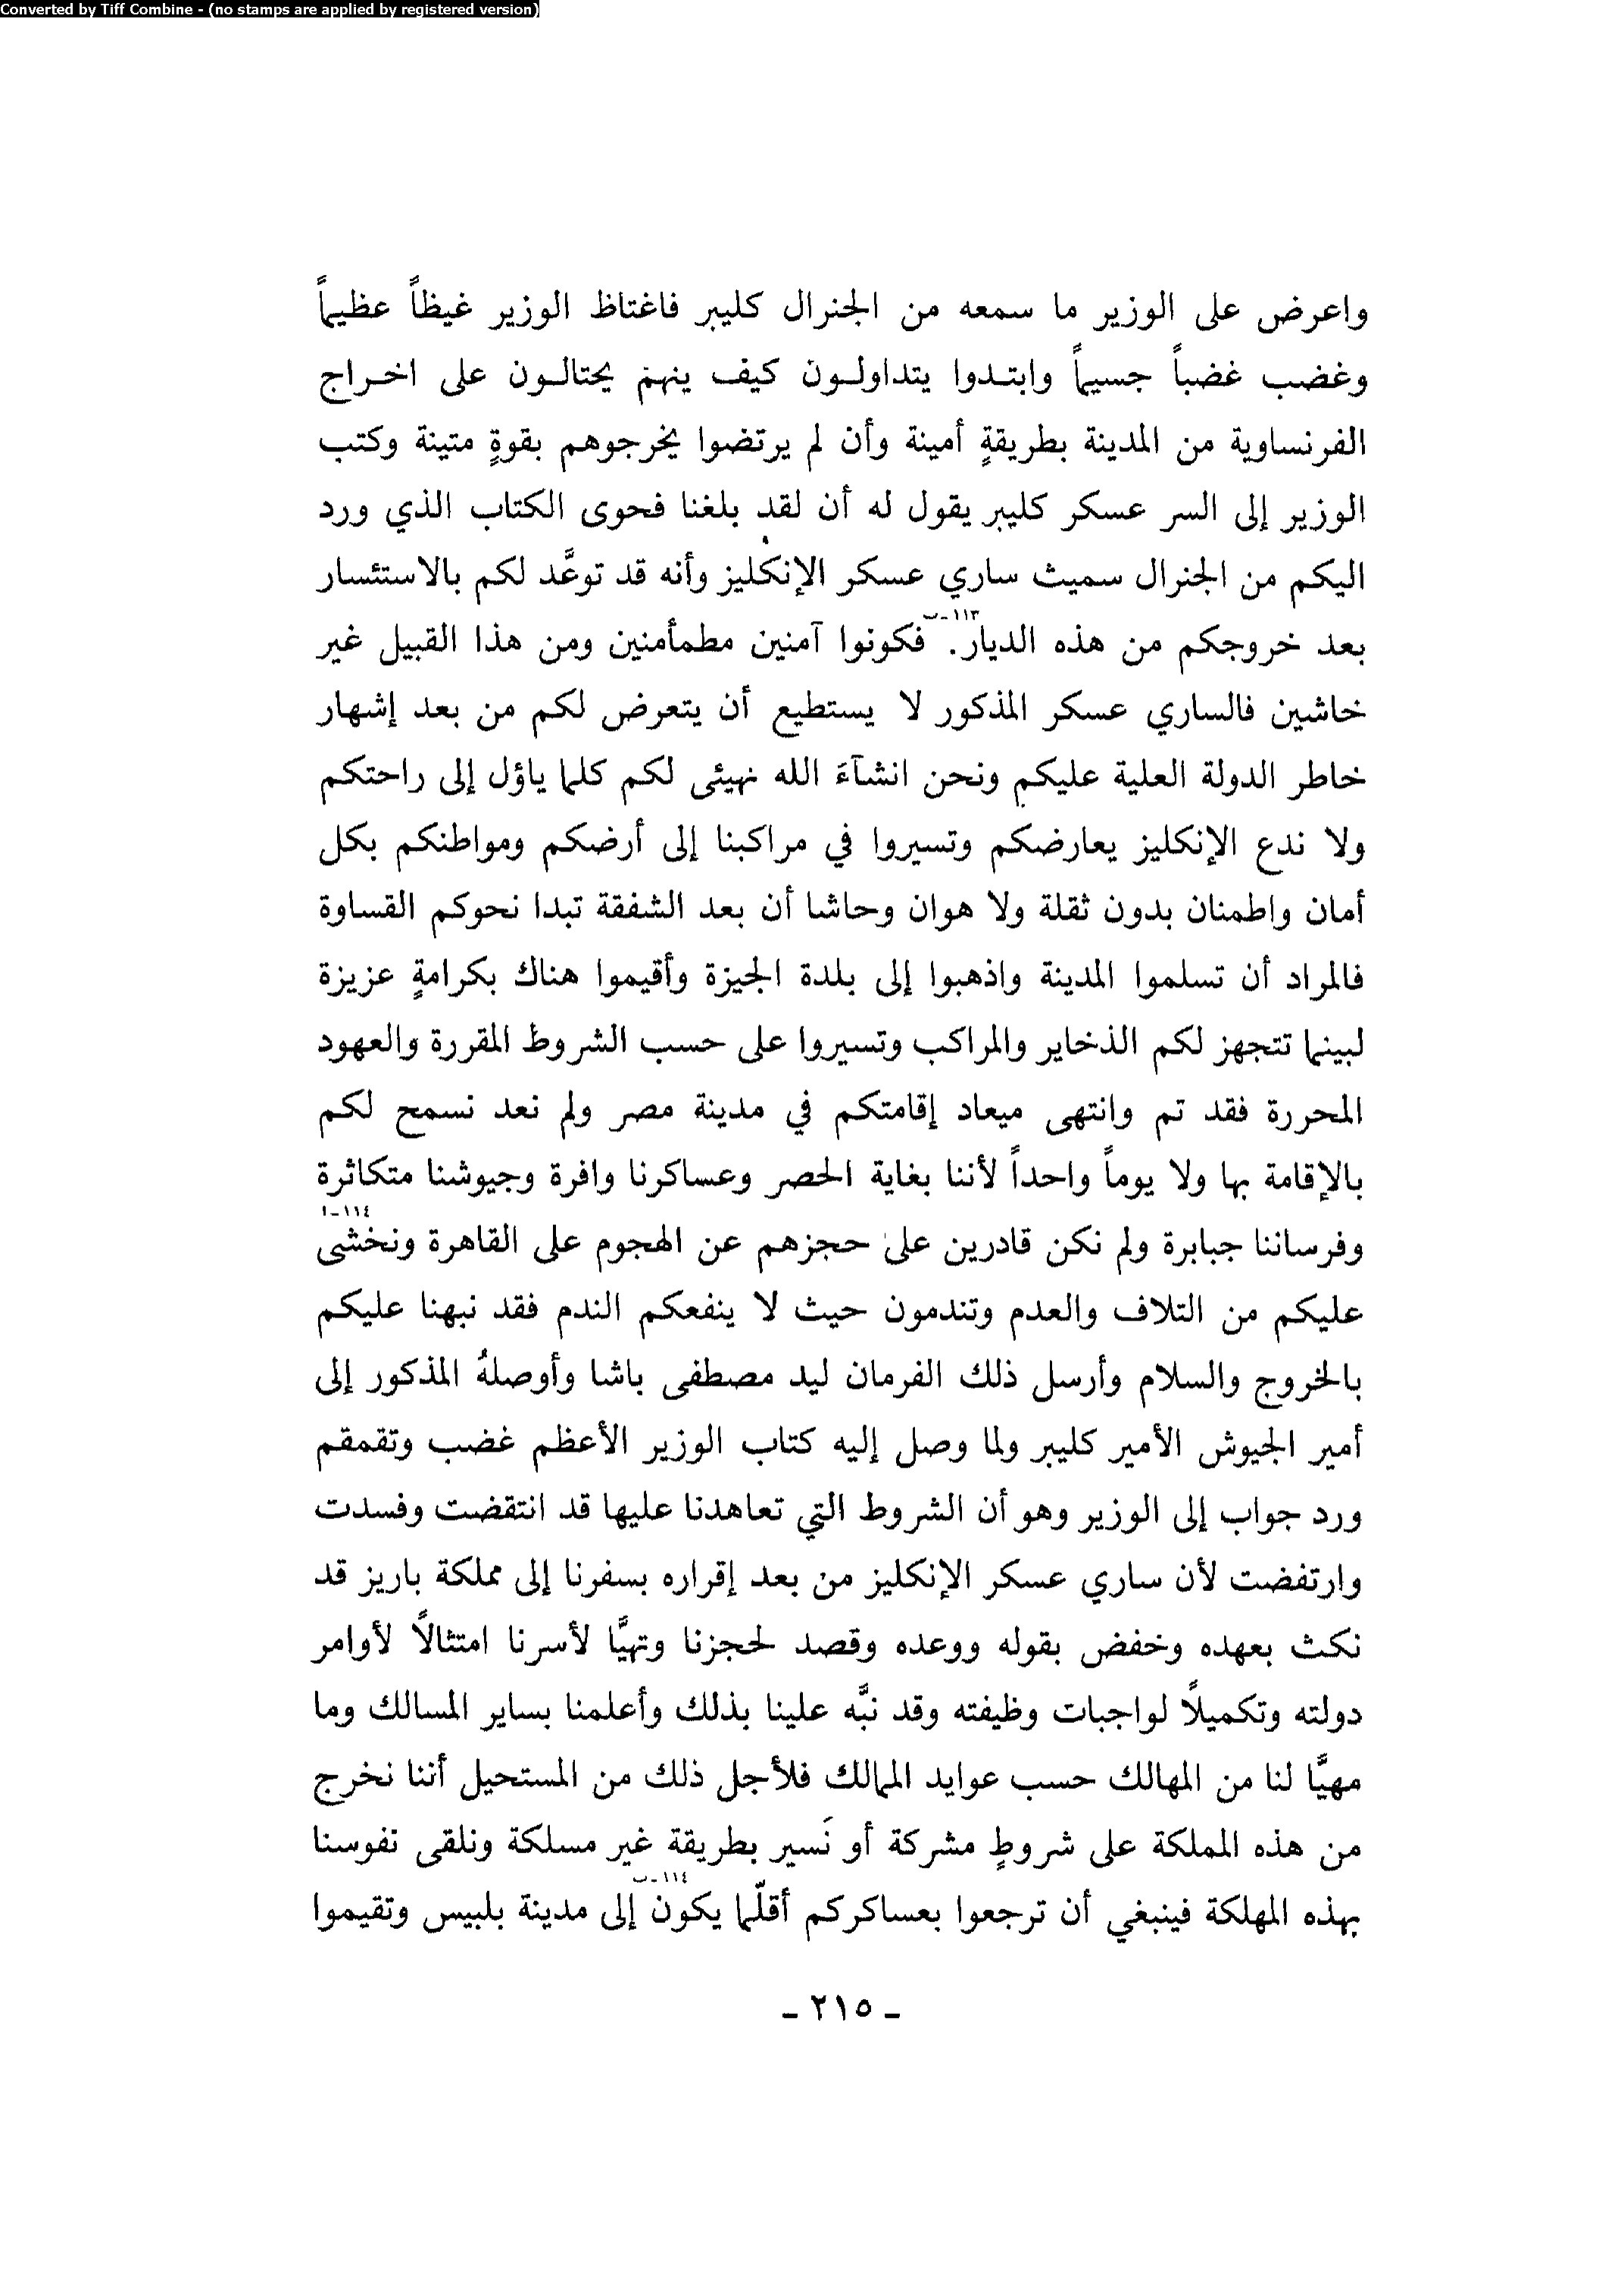 Converted by Tiff Combine - (no stamps are applied by registered version)
واعرض على الوزير ما سمعه من الجنرال كليبر فاغتاظ الوزير غيظاً عظيماً
وغضب غضباً جسيماً وابتدوا يتداولون كيف ينهم يحتالون على اخراج
الفرنساوية من المدينة بطريقةٍ أمينة وأن لم يرتضوا يخرجوهم بقوةٍ متينة وكتب
الوزير إلى السر عسكر كليبر يقول له أن لقد بلغنا فحوى الكتاب الذي ورد
اليكم من الجنرال سميث ساري عسكر الإنكليز وأنه قد توعَّد لكم بالاستئسار
بعد خروجكم من هذه الديار. ١١٣-ب فكونوا آمنين مطمأمنين ومن هذا القبيل غير
خاشين فالساري عسكر المذكور لا يستطيع أن يتعرض لكم من بعد إشهار
خاطر الدولة العلية عليكم ونحن انشآءَ الله نهيئى لكم كلما ياؤل إلى راحتكم
ولا ندع الإنكليز يعارضكم وتسيروا في مراكبنا إلى أرضكم ومواطنكم بكل
أمان واطمنان بدون ثقلة ولا هوان وحاشا أن بعد الشفقة تبدا نحوكم القساوة
فالمراد أن تسلموا المدينة واذهبوا إلى بلدة الجيزة وأقيموا هناك بكرامةٍ عزيزة
لبينما تتجهز لكم الذخاير والمراكب وتسيروا على حسب الشروط المقررة والعهود
المحررة فقد تم وانتهى ميعاد إقامتكم في مدينة مصر ولم نعد نسمح لكم
بالإقامة بها ولا يوماً واحداً لأننا بغاية الحصر وعساكرنا وافرة وجيوشنا متكاثرة
وفرساننا جبابرة ولم نكن قادرين على حجزهم عن الهجوم على القاهرة ١١٤-١ ونخشى
عليكم من التلاف والعدم وتندمون حيث لا ينفعكم الندم فقد نبهنا عليكم
بالخروج والسلام وأرسل ذلك الفرمان ليد مصطفى باشا وأوصلهُ المذكور إلى
أمير الجيوش الأمير كليبر ولما وصل إليه كتاب الوزير الأعظم غضب وتقمقم
ورد جواب إلى الوزير وهو أن الشروط التي تعاهدنا عليها قد انتقضت وفسدت
وارتفضت لأن ساري عسكر الإنكليز من بعد إقراره بسفرنا إلى مملكة باريز قد
نكث بعهده وخفض بقوله ووعده وقصد لحجزنا وتهيَّا لأسرنا امتثالاً لأوامر
دولته وتكميلاً لواجبات وظيفته وقد نبَّه علينا بذلك وأعلمنا بساير المسالك وما
مهيَّا لنا من المهالك حسب عوايد الممالك فلأجل ذلك من المستحيل أننا نخرج
من هذه المملكة على شروطٍ مشركة أو نَسير بطريقة غير مسلكة ونلقى نفوسنا
بهذه المهلكة فينبغي أن ترجعوا بعساكركم أقلّما يكون ١١٤-ب إلى مدينة بلبيس وتقيموا
- ٢١٥ -